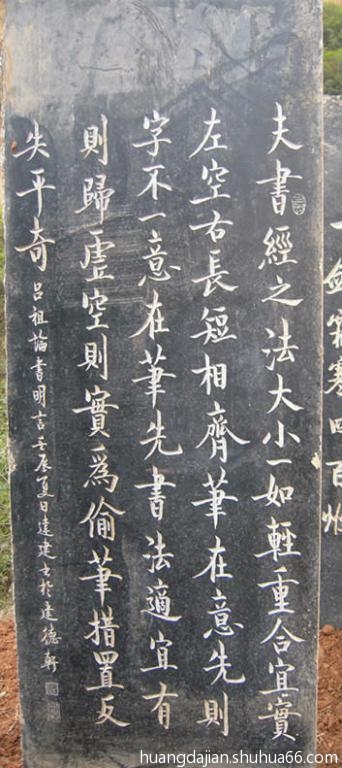 夫書經之法大小一如輕重合宜實
左空右長短相齊筆在意先則
字不一意在筆先書法適宜有
則歸虛空則實為偷筆措置反
失平奇
呂祖論書明言壬辰夏日達建書於達德軒
一劍霜寒四百州
huangdajian.shuhua66.com